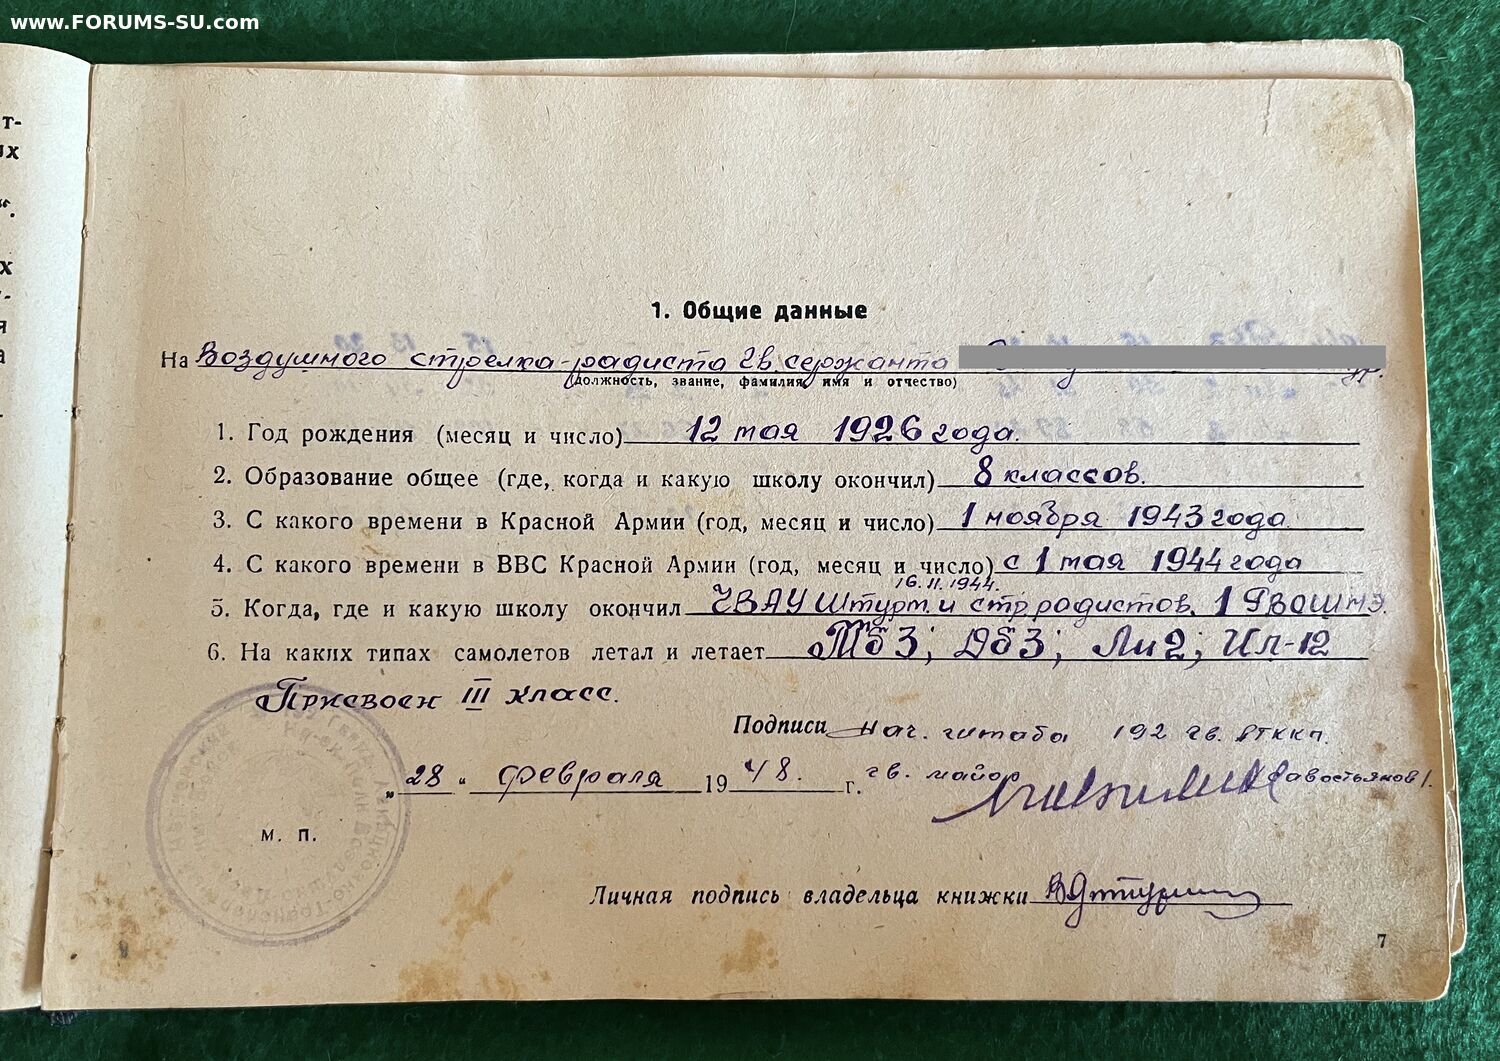 www.FORUMS-SU.com
т-
их
“.
х
-
я
а
1. Общие данные
На Воздушного стрелка-радиста гв. сержанта
(должность, звание, фамилия, имя и отчество)
1. Год рождения (месяц и число) 12 мая 1926 года.
2. Образование общее (где, когда и какую школу окончил) 8 классов.
3. С какого времени в Красной Армии (год, месяц и число) 1 ноября 1943 года.
4. С какого времени в ВВС Красной Армии (год, месяц и число) с 1 мая 1944 года
16.11.1944.
5. Когда, где и какую школу окончил ЧВАУ Штурм. и стр. радистов. 1
6. На каких типах самолетов летал и летает ТБ 3; ДБ 3; Ли 2; Ил-12
Присвоен III класс.
Подписи Нач. штаба 192 гв.
„ 28 “ февраля 19 48. г. гв. майор Савостьянов/.
м. п.
Личная подпись владельца книжки
7